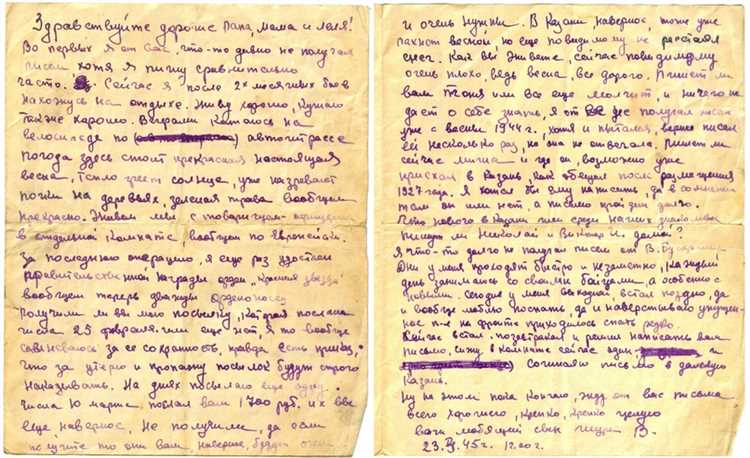 Здравствуйте дорогие Папа, мама и Ляля!
Во первых я от Вас, что-то давно не получал
писем хотя я пишу сравнительно
часто. Сейчас я после 2х месячных боёв
нахожусь на отдыхе. Живу хорошо, Кушаю
также хорошо. Катаюсь на
велосипеде по автотрассе
погода здесь стоит прекрасная настоящая
весна. Тепло греет солнце, уже назревают
почки на деревьях, зеленая трава вообщем
прекрасно. Живем мы, с товарищем
в отдельной комнате, вообщем по Европейски.
За последнюю операцию, я еще раз удостоен
правительственной награды, орден, Красная звезда
вообщем теперь дважды орденоносец
Получили ли вы мою посылку, которая послана
числа 25 февраля или еще нет, я то вообще
сомневаюсь за ее сохранность, правда есть приказ,
что за утерю и пропажу посылок будут строго
наказывать. На днях посылаю еще одну.
Числа 10 марта, послал вам 1700 руб. их вы
еще наверное, не получили, да если
получите то они вам, наверное, будут очень
и очень нужны. В Казани наверное, тоже уже
пахнет весной, но еще повидимому не растаял
снег. Как вы живете, сейчас повидимому
очень плохо, ведь весна, все дорого. Пишет ли
вам Тоня или все еще молчит, и ничего не
дает о себе знать, я от не получал писем
уже с весны 1944 г., хотя и пытался, писал
ей несколько раз, но она не отвечала. Пишет ли
сейчас Миша и где он, возможно уже
приехал в Казань, как обещал после размещения
1927 года. Я хотел бы ему написать, да в сомнении
там он или нет, а письмо пройдет долго.
Что нового в Казани или среди наших знакомых
пишут ли Николай и Виктор К. домой?
Я что-то долго не получал писем от В.
Дни у меня проходят быстро и незаметно, каждый
день занимаюсь со своими бойцами, а особенно с
новыми. Сегодня у меня выходной, встал поздно, да
и вообще люблю поспать, да и наверстываю упущен-
ное на фронте приходилось спать редко.
Сейчас встал, позавтракал и решил написать вам
письмо, сижу в комнате сейчас один и
сочиняю письмо в далекую
Казань.
Ну на этом пока кончаю, жду от вас письма
всего хорошего, крепко, крепко целую
ваш любящий сын В.
23.III.45г. 12.00 г.